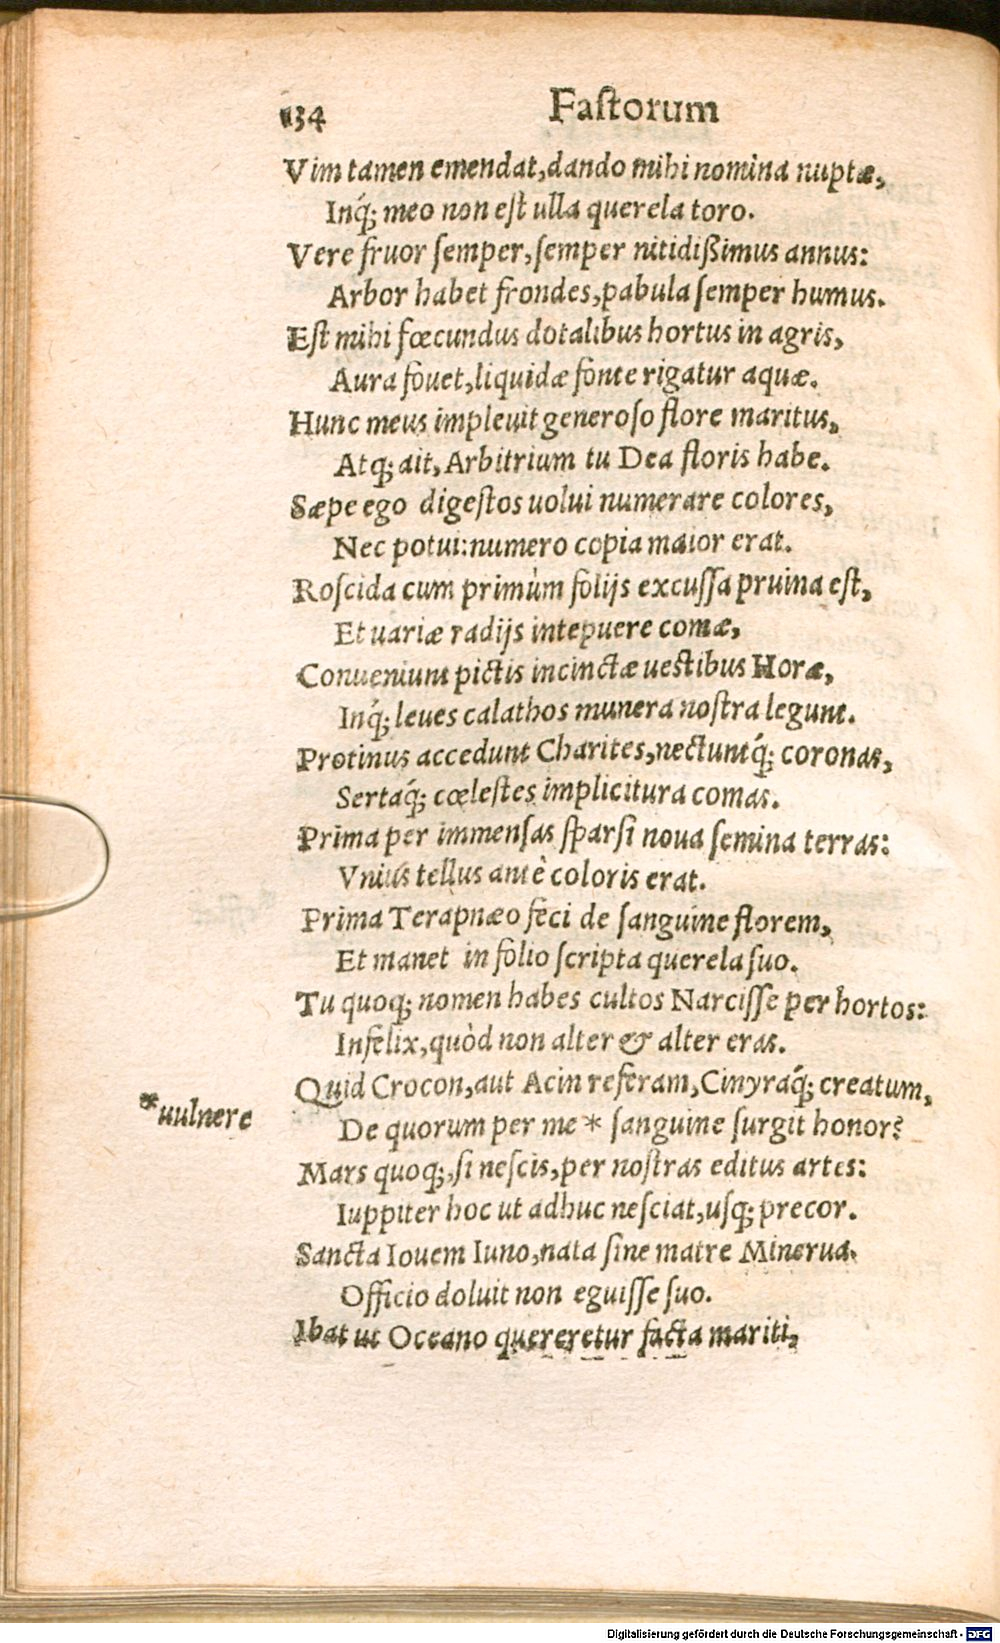 134 Fastorum
Vim tamen emendat, dando mihi nomina nuptæ,
Inq́; meo non est ulla querela toro.
Vere fruor semper, semper nitidißimus annus:
Arbor habet frondes, pabula semper humus.
Est mihi fœcundus dotalibus hortus in agris,
Aura fouet, liquidæ fonte rigatur aquæ.
Hunc meus impleuit generoso flore maritus,
Atq; ait, Arbitrium tu Dea floris habe.
Sæpe ego digestos uolui numerare colores,
Nec potui: numero copia maior erat.
Roscida cum primùm folijs excussa pruina est,
Et uariæ radijs intepuere comæ,
Conueniunt pictis incinctæ uestibus Horæ,
Inq́; leues calathos munera nostra legunt.
Protinus accedunt Charites, nectuntq́; coronas,
Sertaq́; cœlestes implicitura comas.
Prima per immensas sparsi noua semina terras:
Vnius tellus antè coloris erat.
Prima Terapnæo feci de sanguine florem,
Et manet in folio scripta querela suo.
Tu quoq; nomen habes cultos Narcisse per hortos:
Infelix, quòd non alter & alter eras.
Quid Crocon, aut Acin referam, Cinyraq́; creatum,
*uulnere
De quorum per me * sanguine surgit honor?
Mars quoq;, si nescis, per nostras editus artes:
Iuppiter hoc ut adhuc nesciat, usq; precor.
Sancta Iouem Iuno, nata sine matre Minerua.
Officio doluit non eguisse suo.
Ibat ut Oceano quereretur facta mariti,
Digitalisierung gefördert durch die Deutsche Forschungsgemeinschaft - DFG